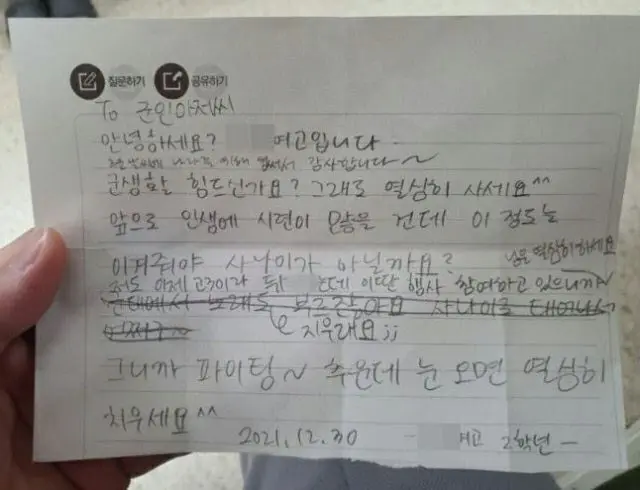 질문하기 공유하기
To 군인아저씨
안녕하세요? 여고입니다
감사합니다~
군생활 힘드신가요? 그래도 열심히 사세요^^
앞으로 인생에 시련이 많을 건데 이 정도는
이겨줘야 사나이가 아닐까요?
님은 열심히 하세요
저도 이제 고3이라 뒤 이딴 행사 참여하고 있으니까~
노래도 부르잖아요 사나이로 태어나서
지우래요;;
그니까 파이팅~ 추운데 눈 오면 열심히
치우세요^^
2021.12.30 - 여고 2학년 -